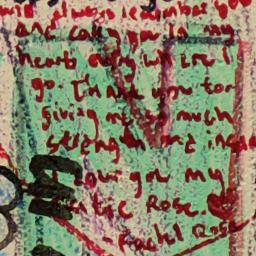 always remember you
and carry you in my
heart everywhere I
go. Thank you for
giving me so much
strength and
my
Rose.
- Rachel Rose